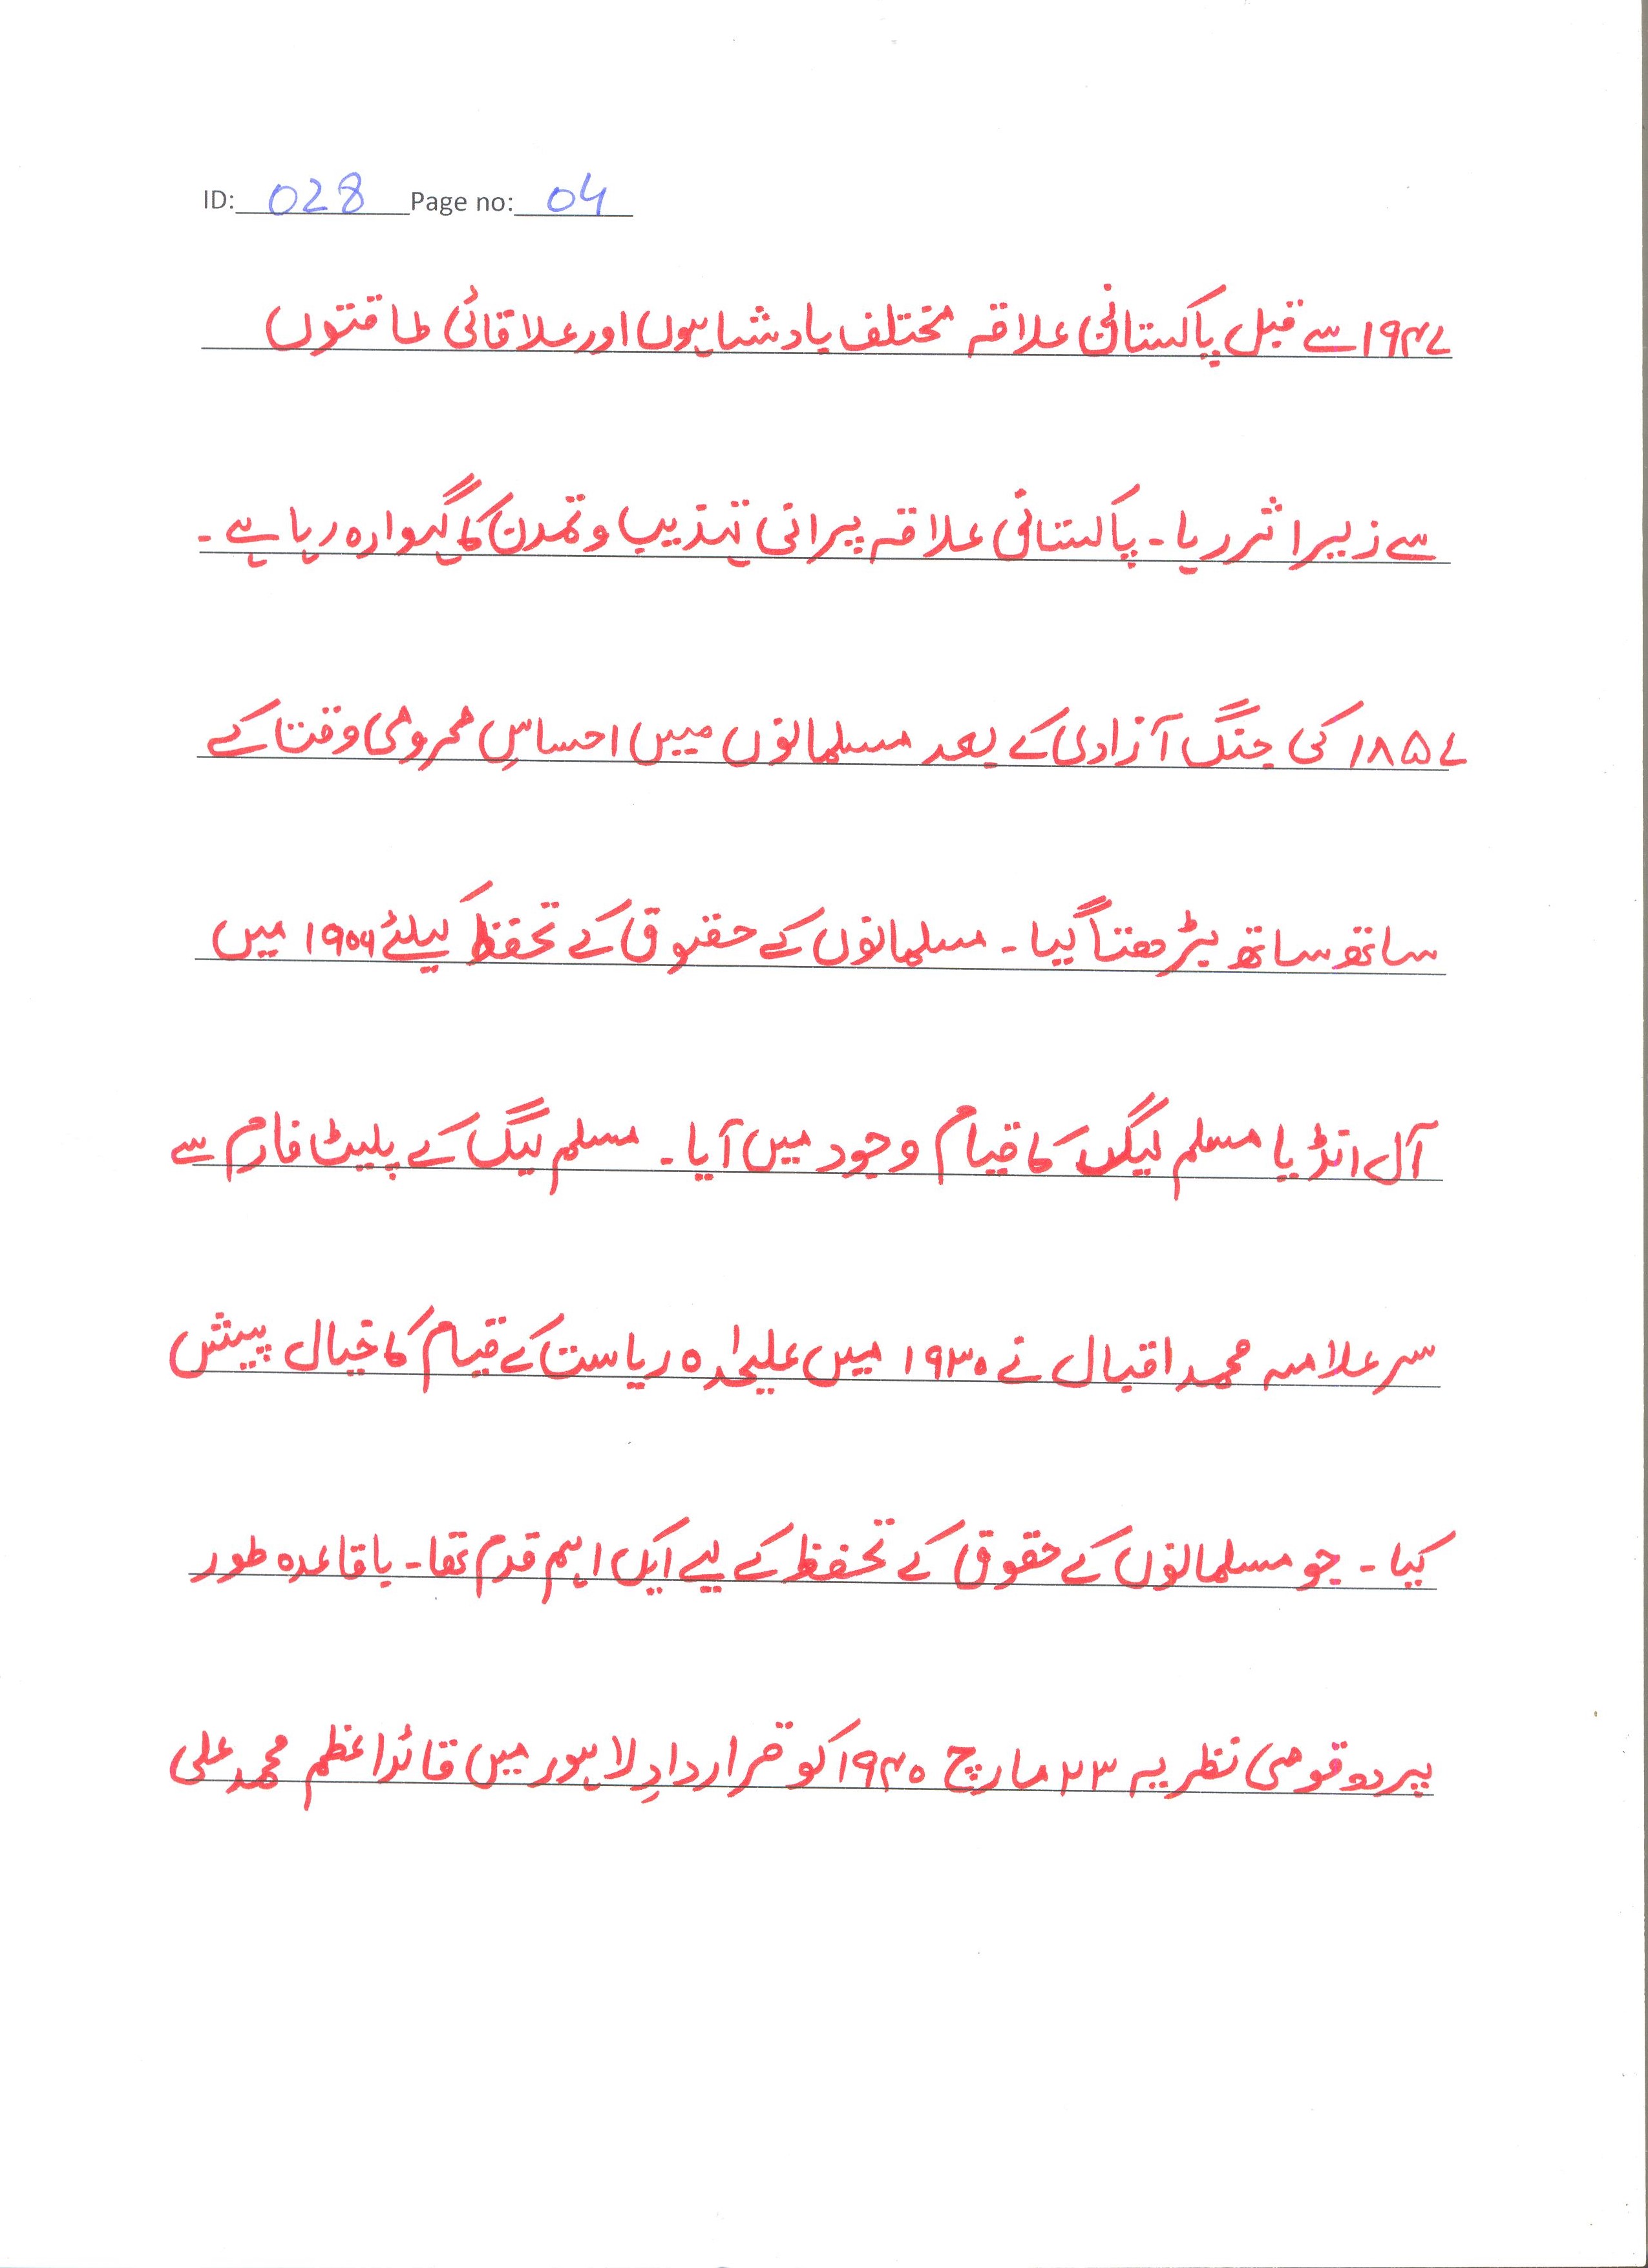 ID: 028 Page no: 04
۱۹۴۷ سے قبل پاکستانی علاقہ مختلف بادشاہوں اور علاقائی طاقتوں
سے زیر اثر رہا۔ پاکستانی علاقہ پرانی تہذیب و تمدن کا گہوارہ رہا ہے۔
۱۸۵۷ کی جنگ آزادی کے بعد مسلمانوں میں احساسِ محرومی وقت کے
ساتھ ساتھ بڑھتا گیا۔ مسلمانوں کے حقوق کے تحفظ کیلئے ۱۹۰۶ میں
آل انڈیا مسلم لیگ کا قیام وجود میں آیا۔ مسلم لیگ کے پلیٹ فارم سے
سر علامہ محمد اقبال نے ۱۹۳۰ میں علیحدہ ریاست کے قیام کا خیال پیش
کیا۔ جو مسلمانوں کے حقوق کے تحفظ کے لیے ایک اہم قدم تھا۔ باقاعدہ طور
پر دو قومی نظریہ ۲۳ مارچ ۱۹۴۰ کو قراردادِ لاہور میں قائداعظم محمد علی